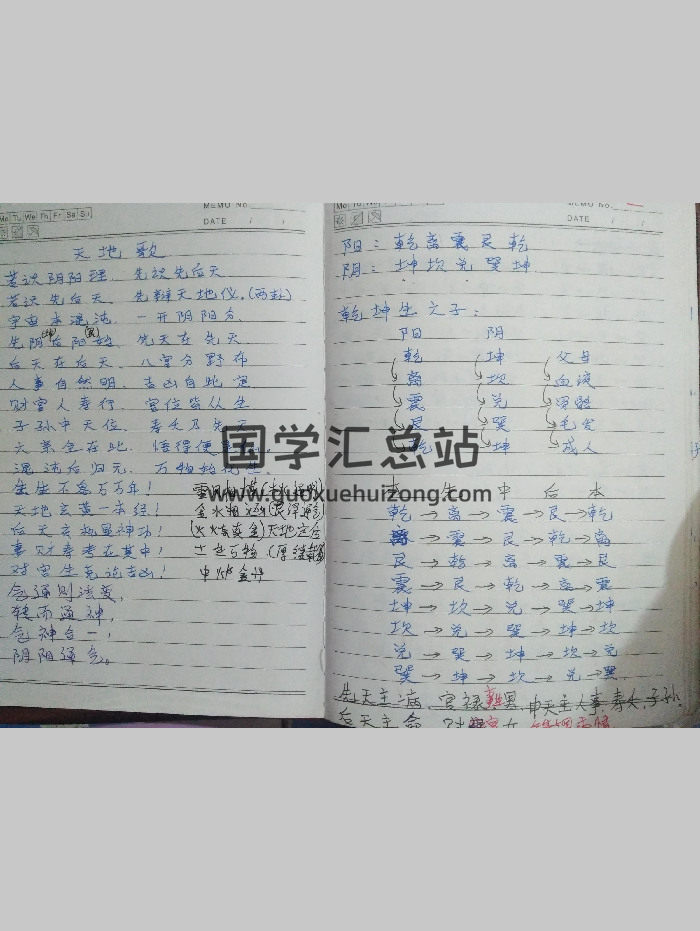 Mo Tu We Th Fr Sa Su
MEMO No.
DATE / /
天地歌
若识阴阳理 先识先后天
若识先后天 先辩天地仪(两卦)
宇宙本混沌 一开阴阳分
先阴后阳 先天在先天
后天在后天 八宫分野布
人事自然明 吉凶自此定
财官人寿行 宫位皆从生
子孙中天位
六亲全在此 悟得便
混沌后归元 万物
生生不息万万年!
天地玄黄一本经!
后天玄机显神功!
事财寿考在其中!
对宫生克论吉凶!
念通则法变,
转而通神,
念神合一,
阴阳通气。
土生万物
国学汇总站
www.guoxuehuizong.com
MEMO No.
DATE / /
阳:乾离震艮乾
阴:坤坎兑巽坤
乾坤生六子:
阳 阴
乾 坤 父母
离 坎 血液
震 兑
艮 巽 毛发
乾 坤 成人
本 先 中 后 本
乾→离→震→艮→乾
离→震→艮→乾→离
艮→乾→离→震→艮
震→艮→乾→离→震
坤→坎→兑→巽→坤
坎→兑→巽→坤→坎
兑→巽→坤→坎→兑
巽→坤→坎→兑→巽
先天主病 官禄 中天主人事,寿夭,子孙
后天主命